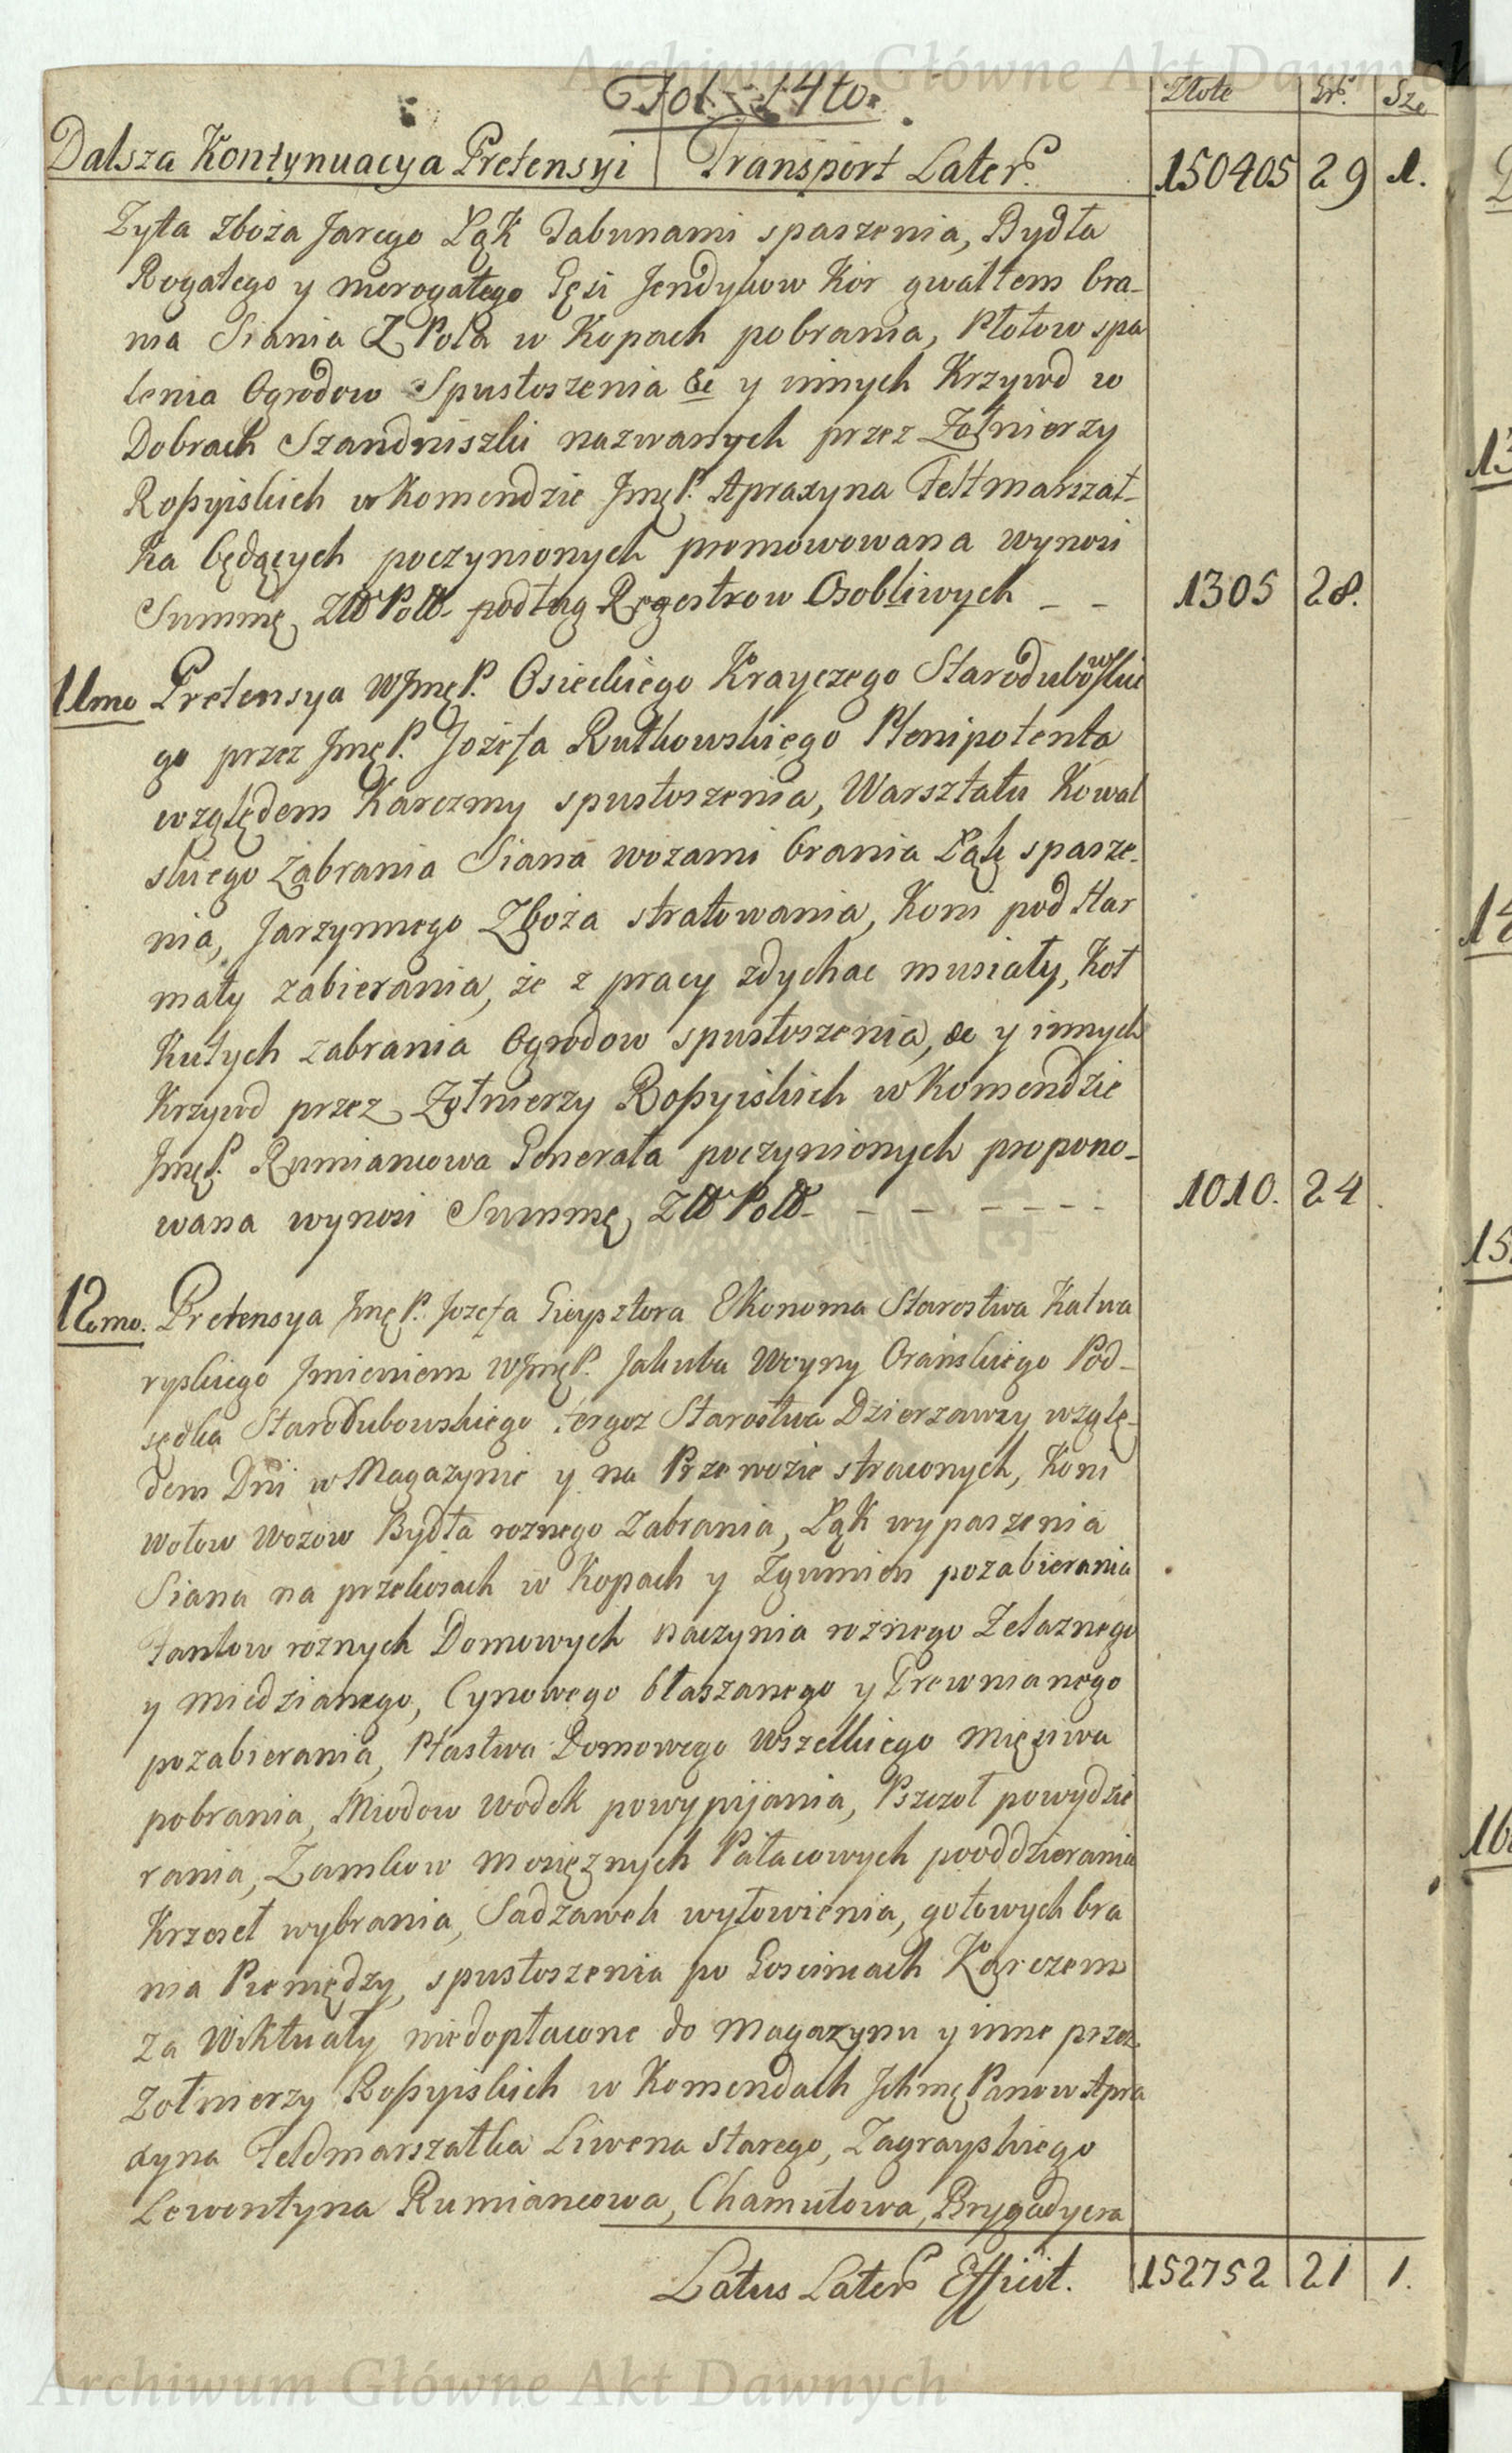 Archiwum Główne Akt Dawnych
Fol. 14to.
Złote Gr. Sze
Dalsza Kontynuacya Pretensyi | Transport Later. 150405 29 1.
Zyta Zboża Jarego Łąk Tabunami spaszenia, Bydła
Rogatego y nierogatego Gęsi Jendykow Kor gwałtem bra-
nia Siania Z Pola w Kopach pobrania, Płotow spa
lenia Ogrodow Spustoszenia &c y innych Krzywd w
Dobrach Szandniszki nazwanych przez Żołnierzy
Roßyiskich w Komendzie Jmę P. Apraxyna Feltmarszał-
ka będących poczynionych promowowana wynosi
Summę Złł Poll. podług Regestrow Osobliwych - - 1305 28.
11mo Pretensya WJmę P. Osieckiego Krayczego Starodubowskie
go przez Jmę P. Jozefa Rutkowskiego Plenipotenta
względem Karczmy spustoszenia, Warsztatu Kowal
skiego Zabrania Siana wozami brania Łąk spasze-
nia, Jarzynnego Zboża stratowania, Koni pod Har
maty zabierania, że z pracy zdychac musiały, Koł
Kutych zabrania Ogrodow spustoszenia, &c y innych
Krzywd przez Żołnierzy Roßyiskich w Komendzie
Jmę P. Rumiancowa Generała poczynionych propono-
wana wynosi Summę Złł Poll - - - - - - 1010. 24
12mo. Pretensya Jmę P. Jozefa Gieysztora Ekonoma Starostwa Kalwa
ryskiego Jmieniem WJmę P. Jakuba Woyny Oranskiego Pod-
sędka Starodubowskiego tergoz Starostwa Dzierzawzy wzglę-
dem Dni w Magazynie y na Przewozie straconych, Koni
Wołow Wozow Bydła roznego Zabrania, Łąk wypaszenia
Siana na przekosach w Kopach y Zgumien pozabierania
Fantow roznych Domowych naczynia rożnego Zelaznego
y Miedzianego, Cynowego blaszanego y Drewnianego
pozabierania, Ptastwa Domowego Wszelkiego Mięsiwa
pobrania, Miodow Wodek powypijania, Pszczoł powydzie
rania, Zamkow Mosięznych Pałacowych pooddzierania
Krzeseł wybrania, Sadzawek wyłowienia, gotowych bra
nia Pieniędzy, spustoszenia po Goscincach Karczem
Za Wiktuały niedopłacone do Magazynu y inne przez
Żołnierzy Roßyiskich w Komendach Jchmę Panow Apra
xyna Feldmarszałka Liwena Starego, Zagrayskiego
Lewentyna Rumiancowa, Chamutowa, Brygadyera
Latus Later Efficit. 152752 21 1.
Archiwum Główne Akt Dawnych